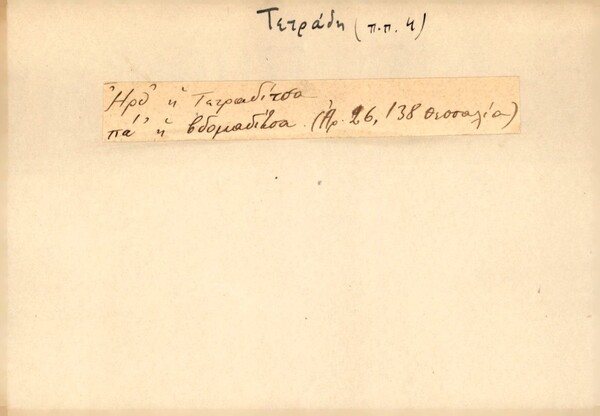 Τετράδη (π.π. 4)
Ἦρθ' ἡ Τετραδίτσα
πά' ἡ βδομαδίτσα. (Ἀρ. 26, 138 Θεσσαλία)